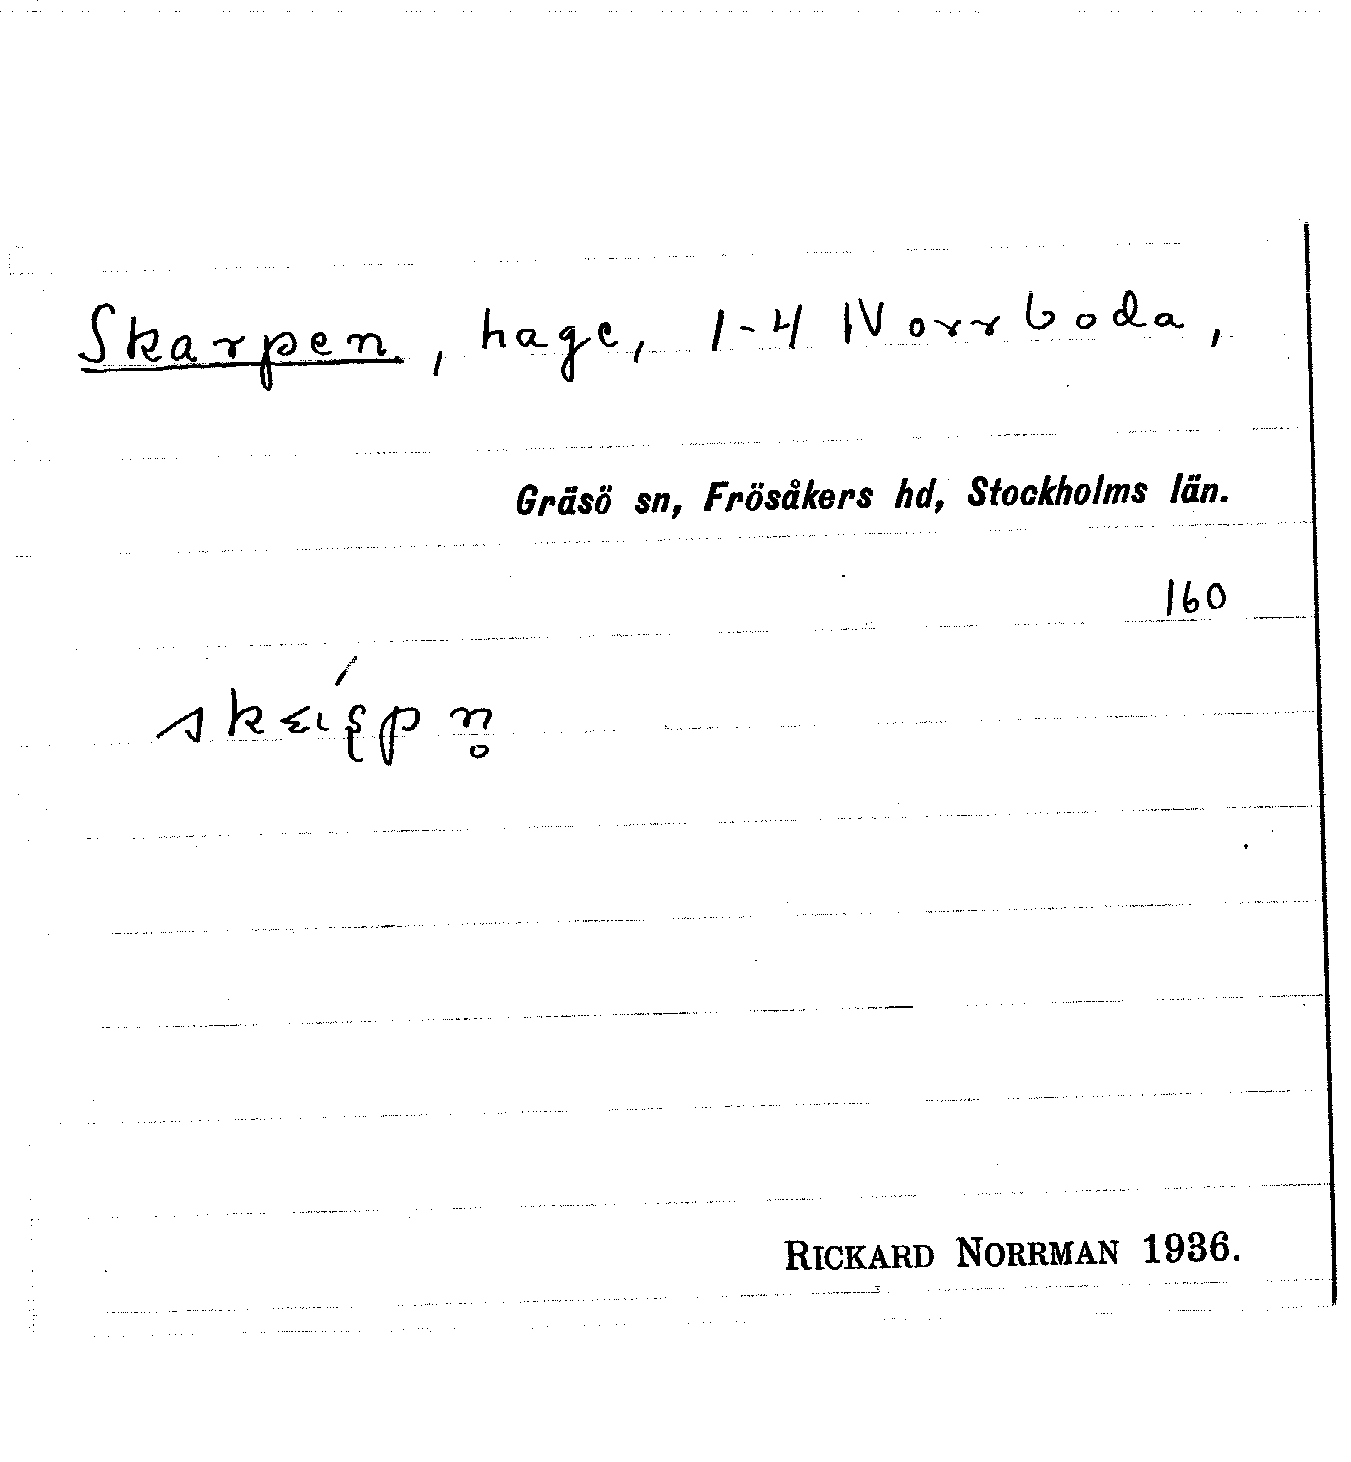 Skarpen, hage, 1-4 Norrboda,
Gräsö sn, Frösåkers hd, Stockholms län.
160
RICKARD NORRMAN 1936.